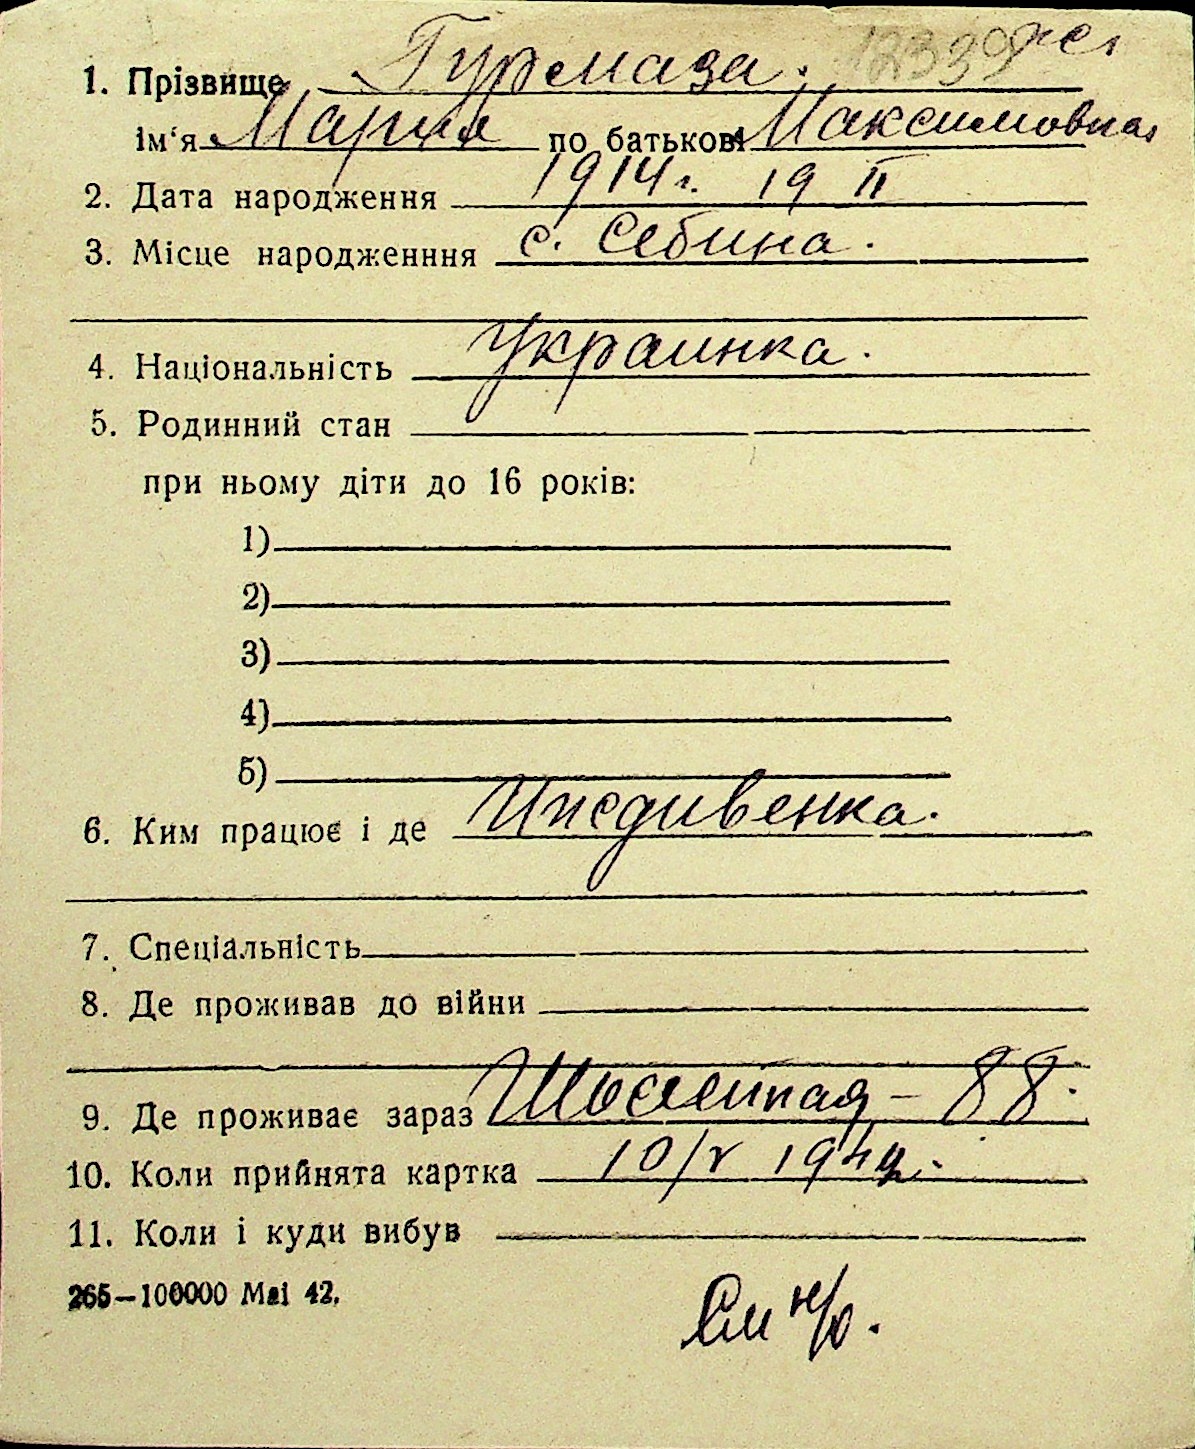 12339 жен
1. Прізвище Гурмаза.
ім‘я Мария по батькові Максимовна
2. Дата народження 1914 г. 19 II
3. Місце народженння с. Себина.
4. Національність Украинка.
5. Родинний стан
при ньому діти до 16 років:
1)
2)
3)
4)
5)
6. Ким працює і де Иждивенка.
7. Спеціальність
8. Де проживав до війни
9. Де проживає зараз – 88.
10. Коли прийнята картка 10/V 1942.
11. Коли і куди вибув
265—100000 Маі 42.
См н/о.